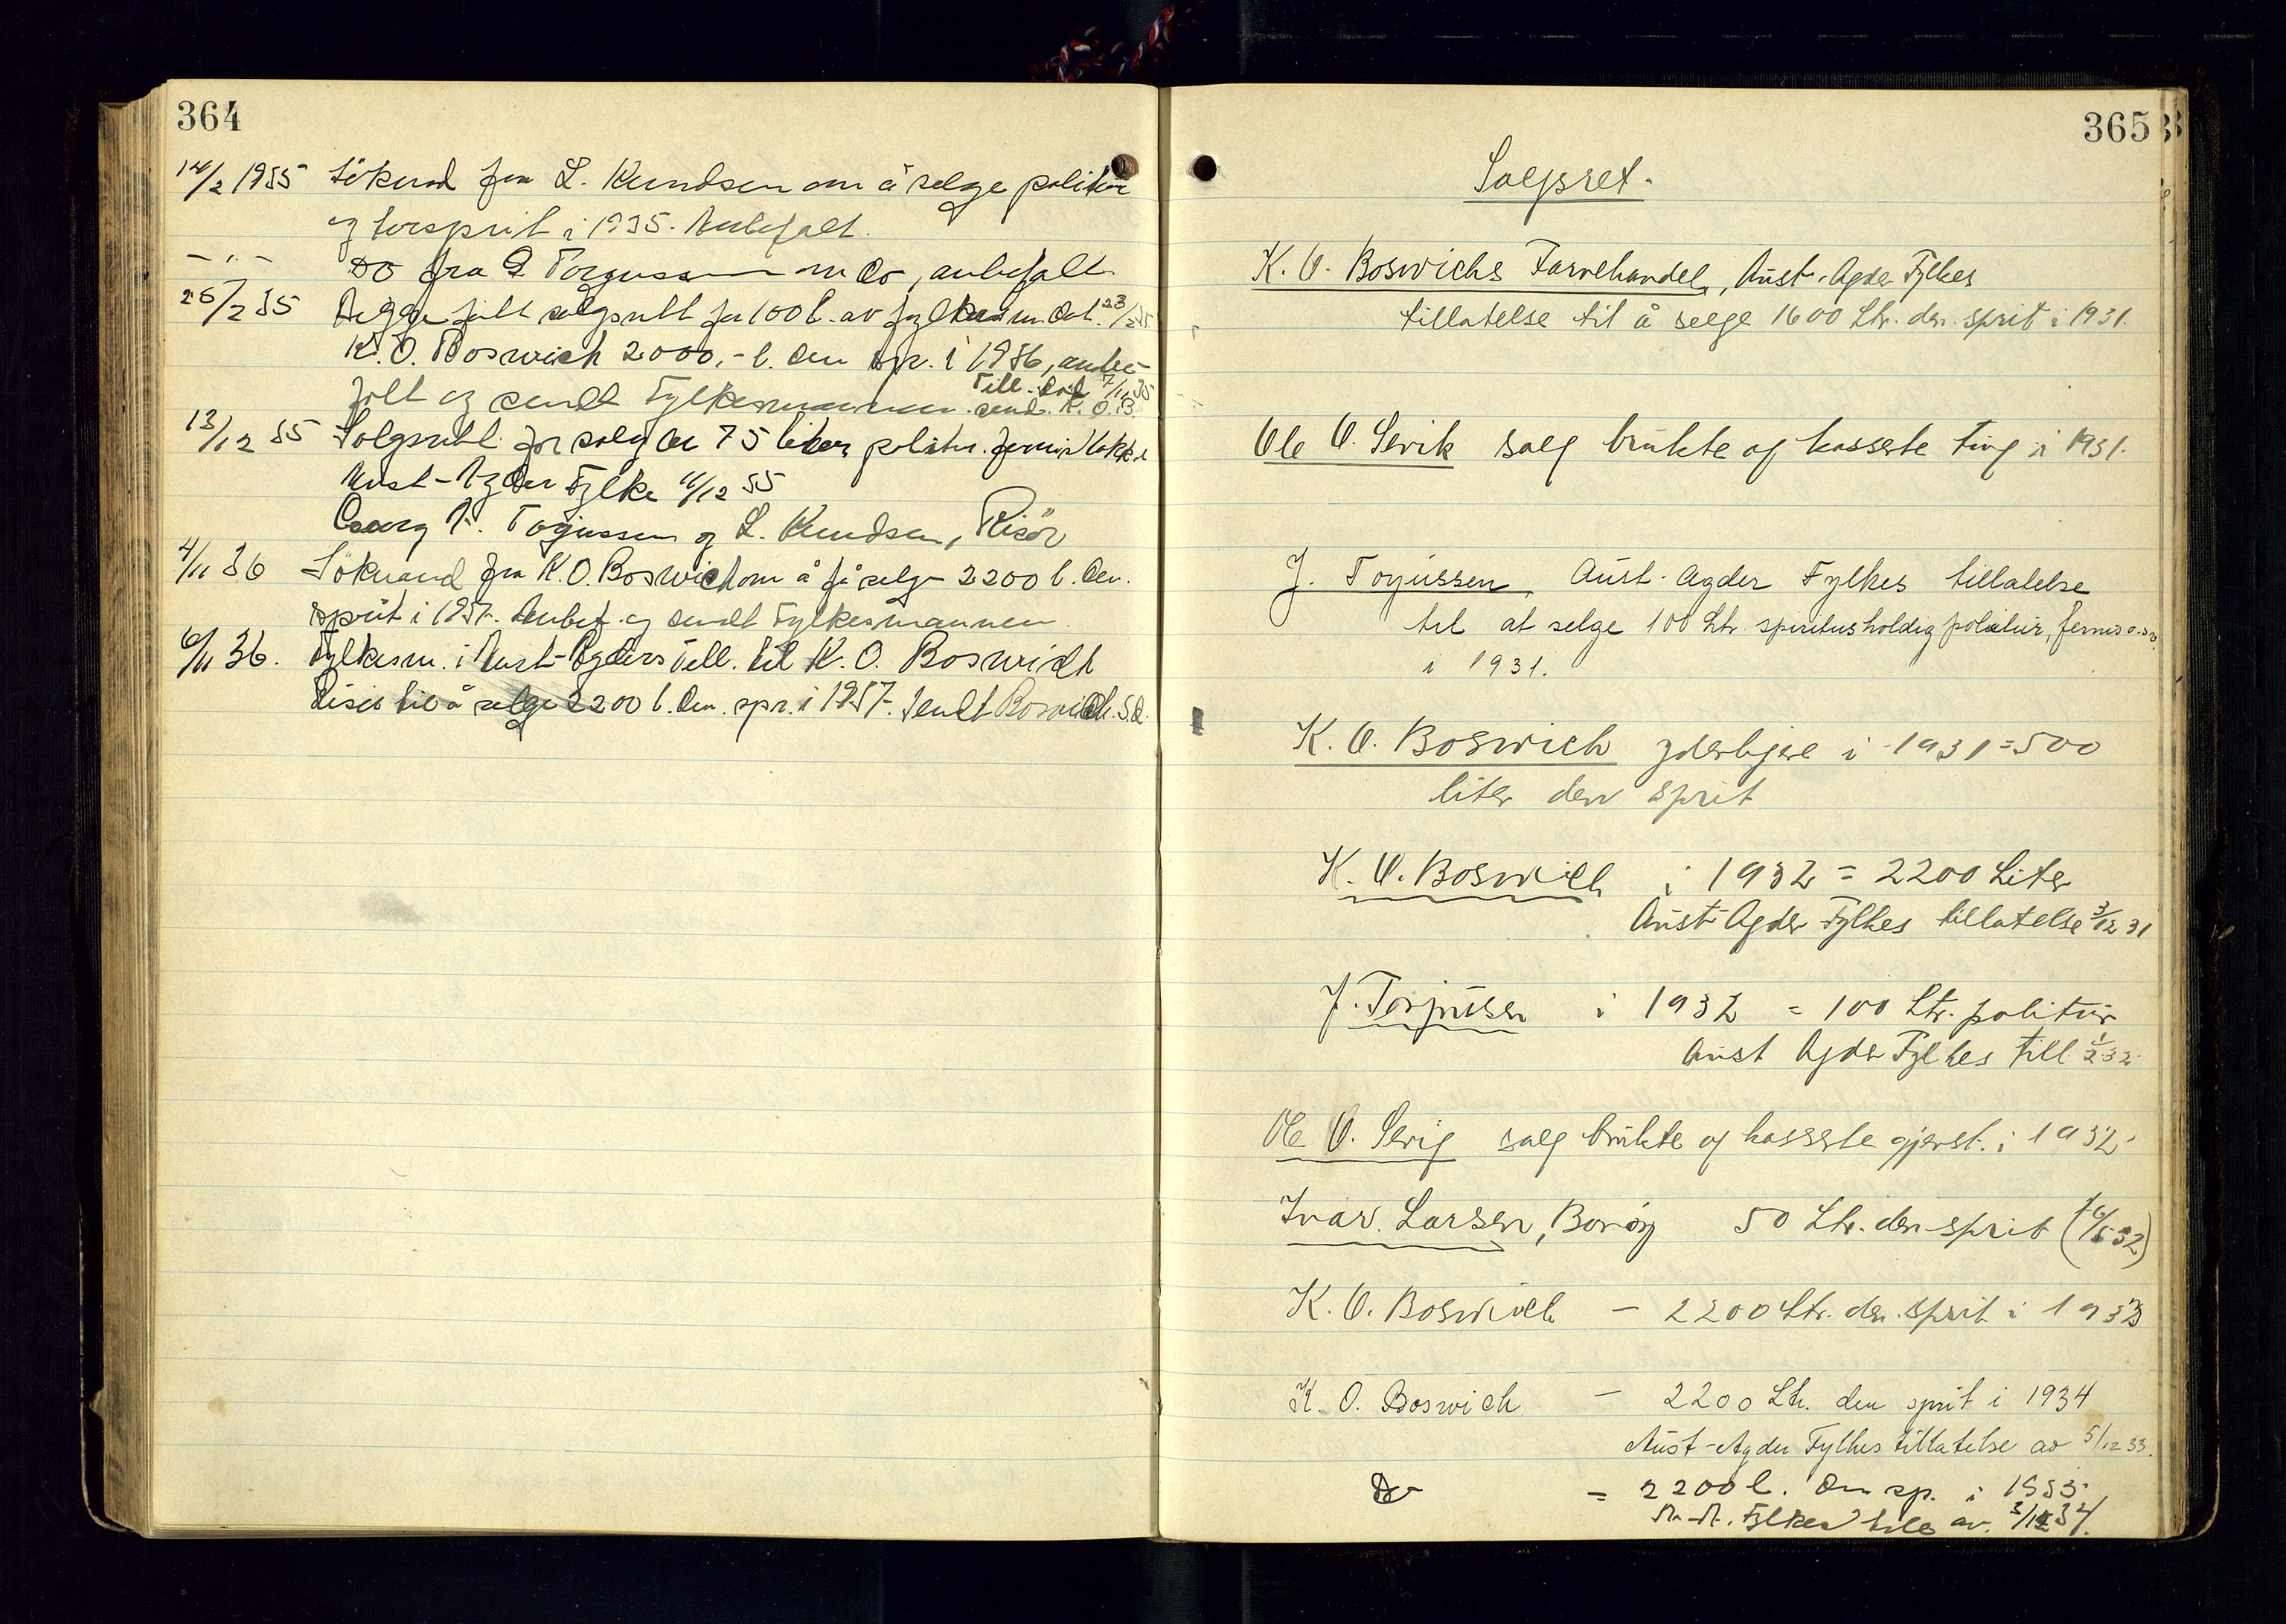 364
14/2 1935 Søknad fra L. Knudsen om å selge politur
og tørsprit i 1935. Anbefalt.
- " - Do fra J. Torgussen m Co, anbefalt
26/2 35 Begge fått salgsrett for 100 l. av fylkesm. dat. 23/2 35.
K. O. Boswich 2000,- l. den spr. i 1936, anbe-
falt og sendt Fylkesmannen. Till. dat 7/11 35
send. K. O. B.
13/12 35 Salgsrett for salg av 75 liter politur. fernis lakk.
Aust-Agder Fylke 11/12 35
Georg A. Torjussen og L. Knudsen, Risör
4/11 36 Söknand fra K. O. Boswich om å få selge 2200 l. den.
sprit i 1937. Anbef. og sendt Fylkesmannen.
6/11 36. Fylkesm. i Aust-Agders Till. til K. O. Boswich
Risör til å selge 2200 l. den. spr. i 1937. Sendt Boswich. S.d.
365
Salgsret.
K. O. Boswichs Farvehandel, Aust-Agder Fylkes
tillatelse til å selge 1600 Ltr. den. sprit i 1931.
Ole O. Sevik salg brukte og kasserte ting i 1931.
J. Torjussen, Aust-Agder Fylkes tillatelse
til at selge 100 Ltr. spiritusholdig politur, fernis o.s.v.
i 1931.
K. O. Boswich yderligere i 1931 = 500
liter den sprit
K. O. Boswich i 1932 = 2200 Liter
Aust-Agder Fylkes tillatelse 3/12 31
J. Torjusen i 1932 = 100 Ltr. politur
Aust Agder Fylkes till 1/2 32
Ole O. Sevig salg brukte og kasserte gjenst. i 1932
Ivar Larsen, Borøy 50 Ltr. den sprit (16/5 32)
K. O. Boswich - 2200 Ltr. den. sprit i 1933
K. O. Boswich - 2200 Ltr. den sprit i 1934
Aust-Agder Fylkes tillatelse av 5/12 33.
Do = 2200 l. den sp. i 1935
A.-A. Fylkes till av. 3/12 34.